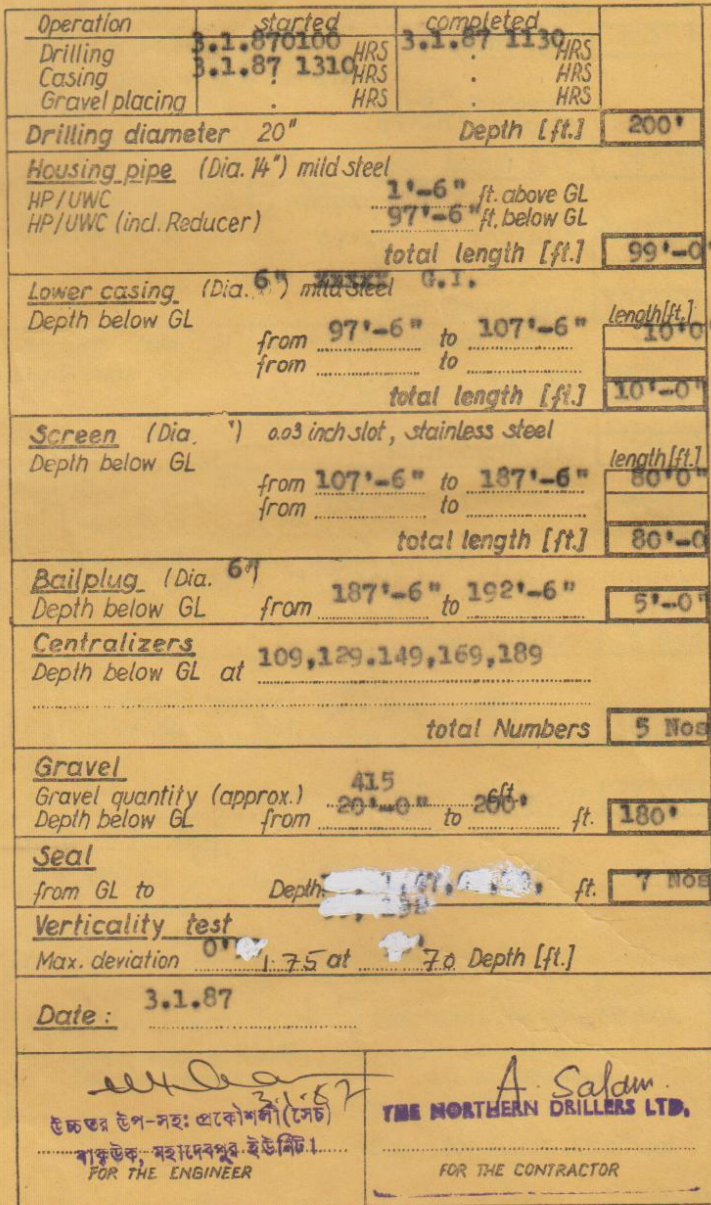 Operation started completed
Drilling 3.1.870100 HRS 3.1.87 1130 HRS
Casing 3.1.87 1310 HRS . HRS
Gravel placing . HRS . HRS
Drilling diameter 20" Depth [ft.] 200'
Housing pipe (Dia. 14") mild steel
HP/UWC 1'-6" ft. above GL
HP/UWC (incl. Reducer) 97'-6" ft. below GL
total length [ft.] 99'-0
Lower casing (Dia. 6") mild steel G.I.
Depth below GL length[ft.]
from 97'-6" to 107'-6" 10'0
from to
total length [ft.] 10'-0"
Screen (Dia. ") 0.03 inch slot, stainless steel
Depth below GL length[ft.]
from 107'-6" to 187'-6" 80'0"
from to
total length [ft.] 80'-0
Bailplug (Dia. 6")
Depth below GL from 187'-6" to 192'-6" 5'-0"
Centralizers
Depth below GL at 109,129.149,169,189
total Numbers 5 Nos
Gravel
Gravel quantity (approx.) 415 cft
Depth below GL from 20'-0" to 200' ft. 180'
Seal
from GL to Depth ft. 7 Nos
Verticality test
Max. deviation 0" 1.75 at 70 Depth [ft.]
Date: 3.1.87
3.1.87
উচ্চতর উপ-সহঃ প্রকৌশলী (সেচ)
বাকৃউক, মহাদেবপুর ইউনিট।
FOR THE ENGINEER
A. Salam
THE NORTHERN DRILLERS LTD.
FOR THE CONTRACTOR